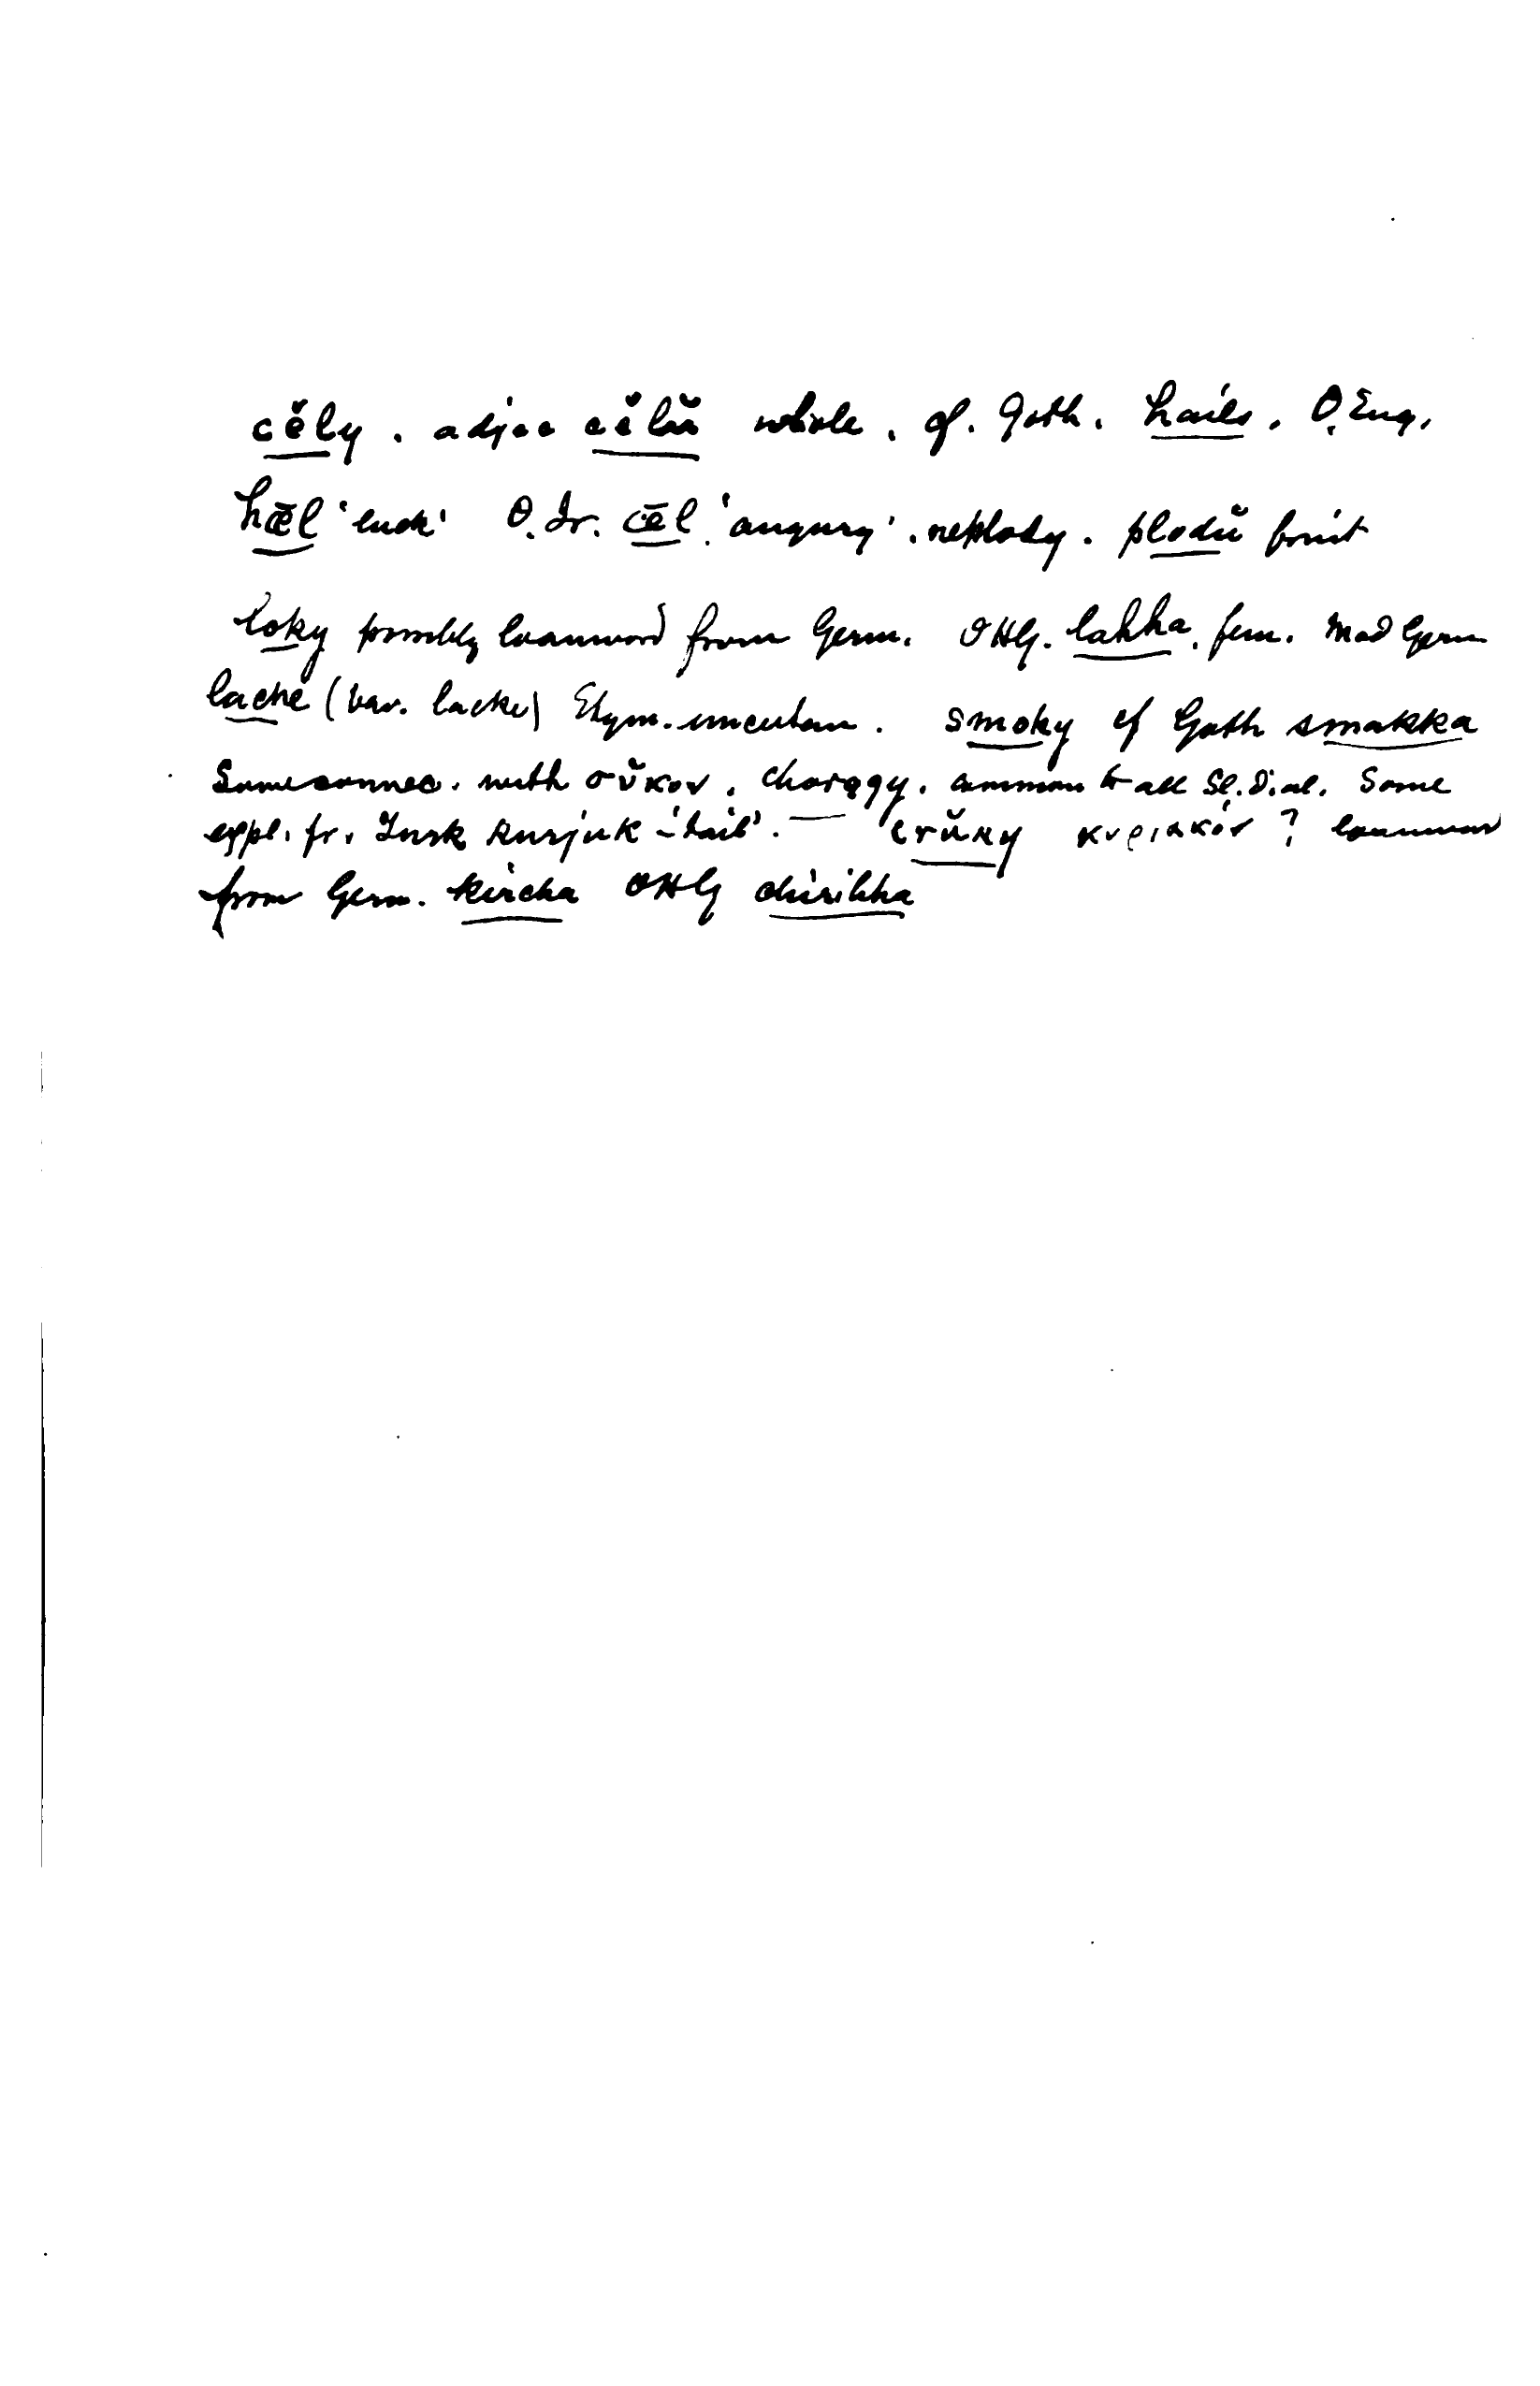 cěly. adjec cělŭ whole. cf. Goth. hails. O.Eng.
hǣl 'luck' O.Ir. cēl 'augury'. neplody. plodŭ fruit
loky possibly loanword from Germ. OHG. lahha. fem. Mod Germ
lache (bav. lacke) Etym. uncertain. smoky cf Goth smakka
Some connec. with σῦκον. chorǫgy. common to all Sl. Dial. Some
expl. fr. Turk kurjuk - 'tail'. — crŭky κυριακόν ? loanword
from Germ. kircha OHG chirihha